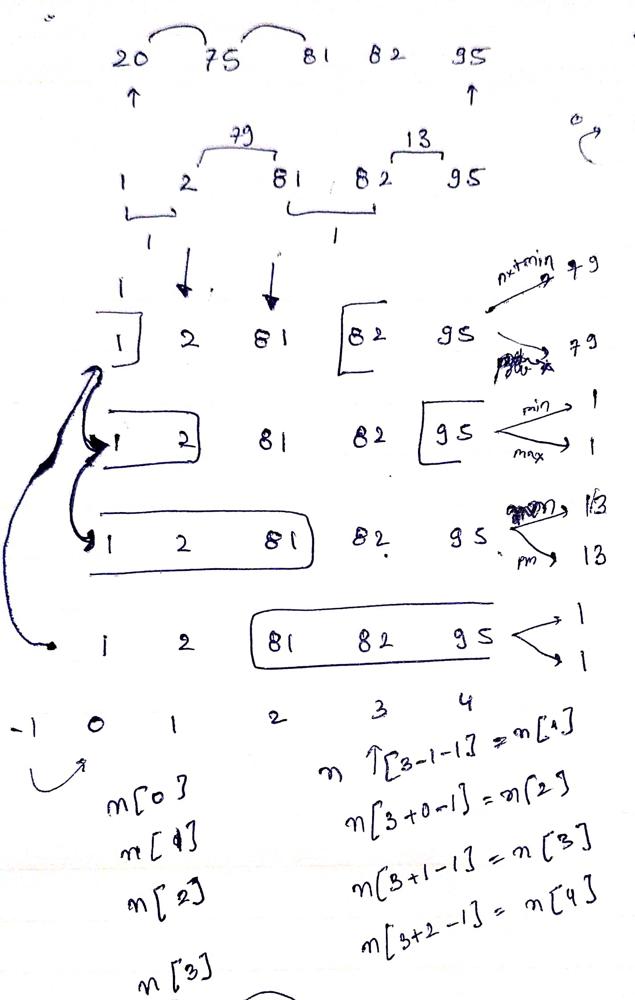 20 75 81 82 95
79 13
1 2 81 82 95
1 1
1
1 2 81 82 95
nxtmin 79
79
1 2 81 82 95
min 1
max 1
1 2 81 82 95
13
pm 13
1 2 81 82 95
1
1
-1 0 1 2 3 4
n[0] n [3-1-1] = n[1]
n[1] n[3+0-1] = n[2]
n[2] n[3+1-1] = n[3]
n[3] n[3+2-1] = n[4]